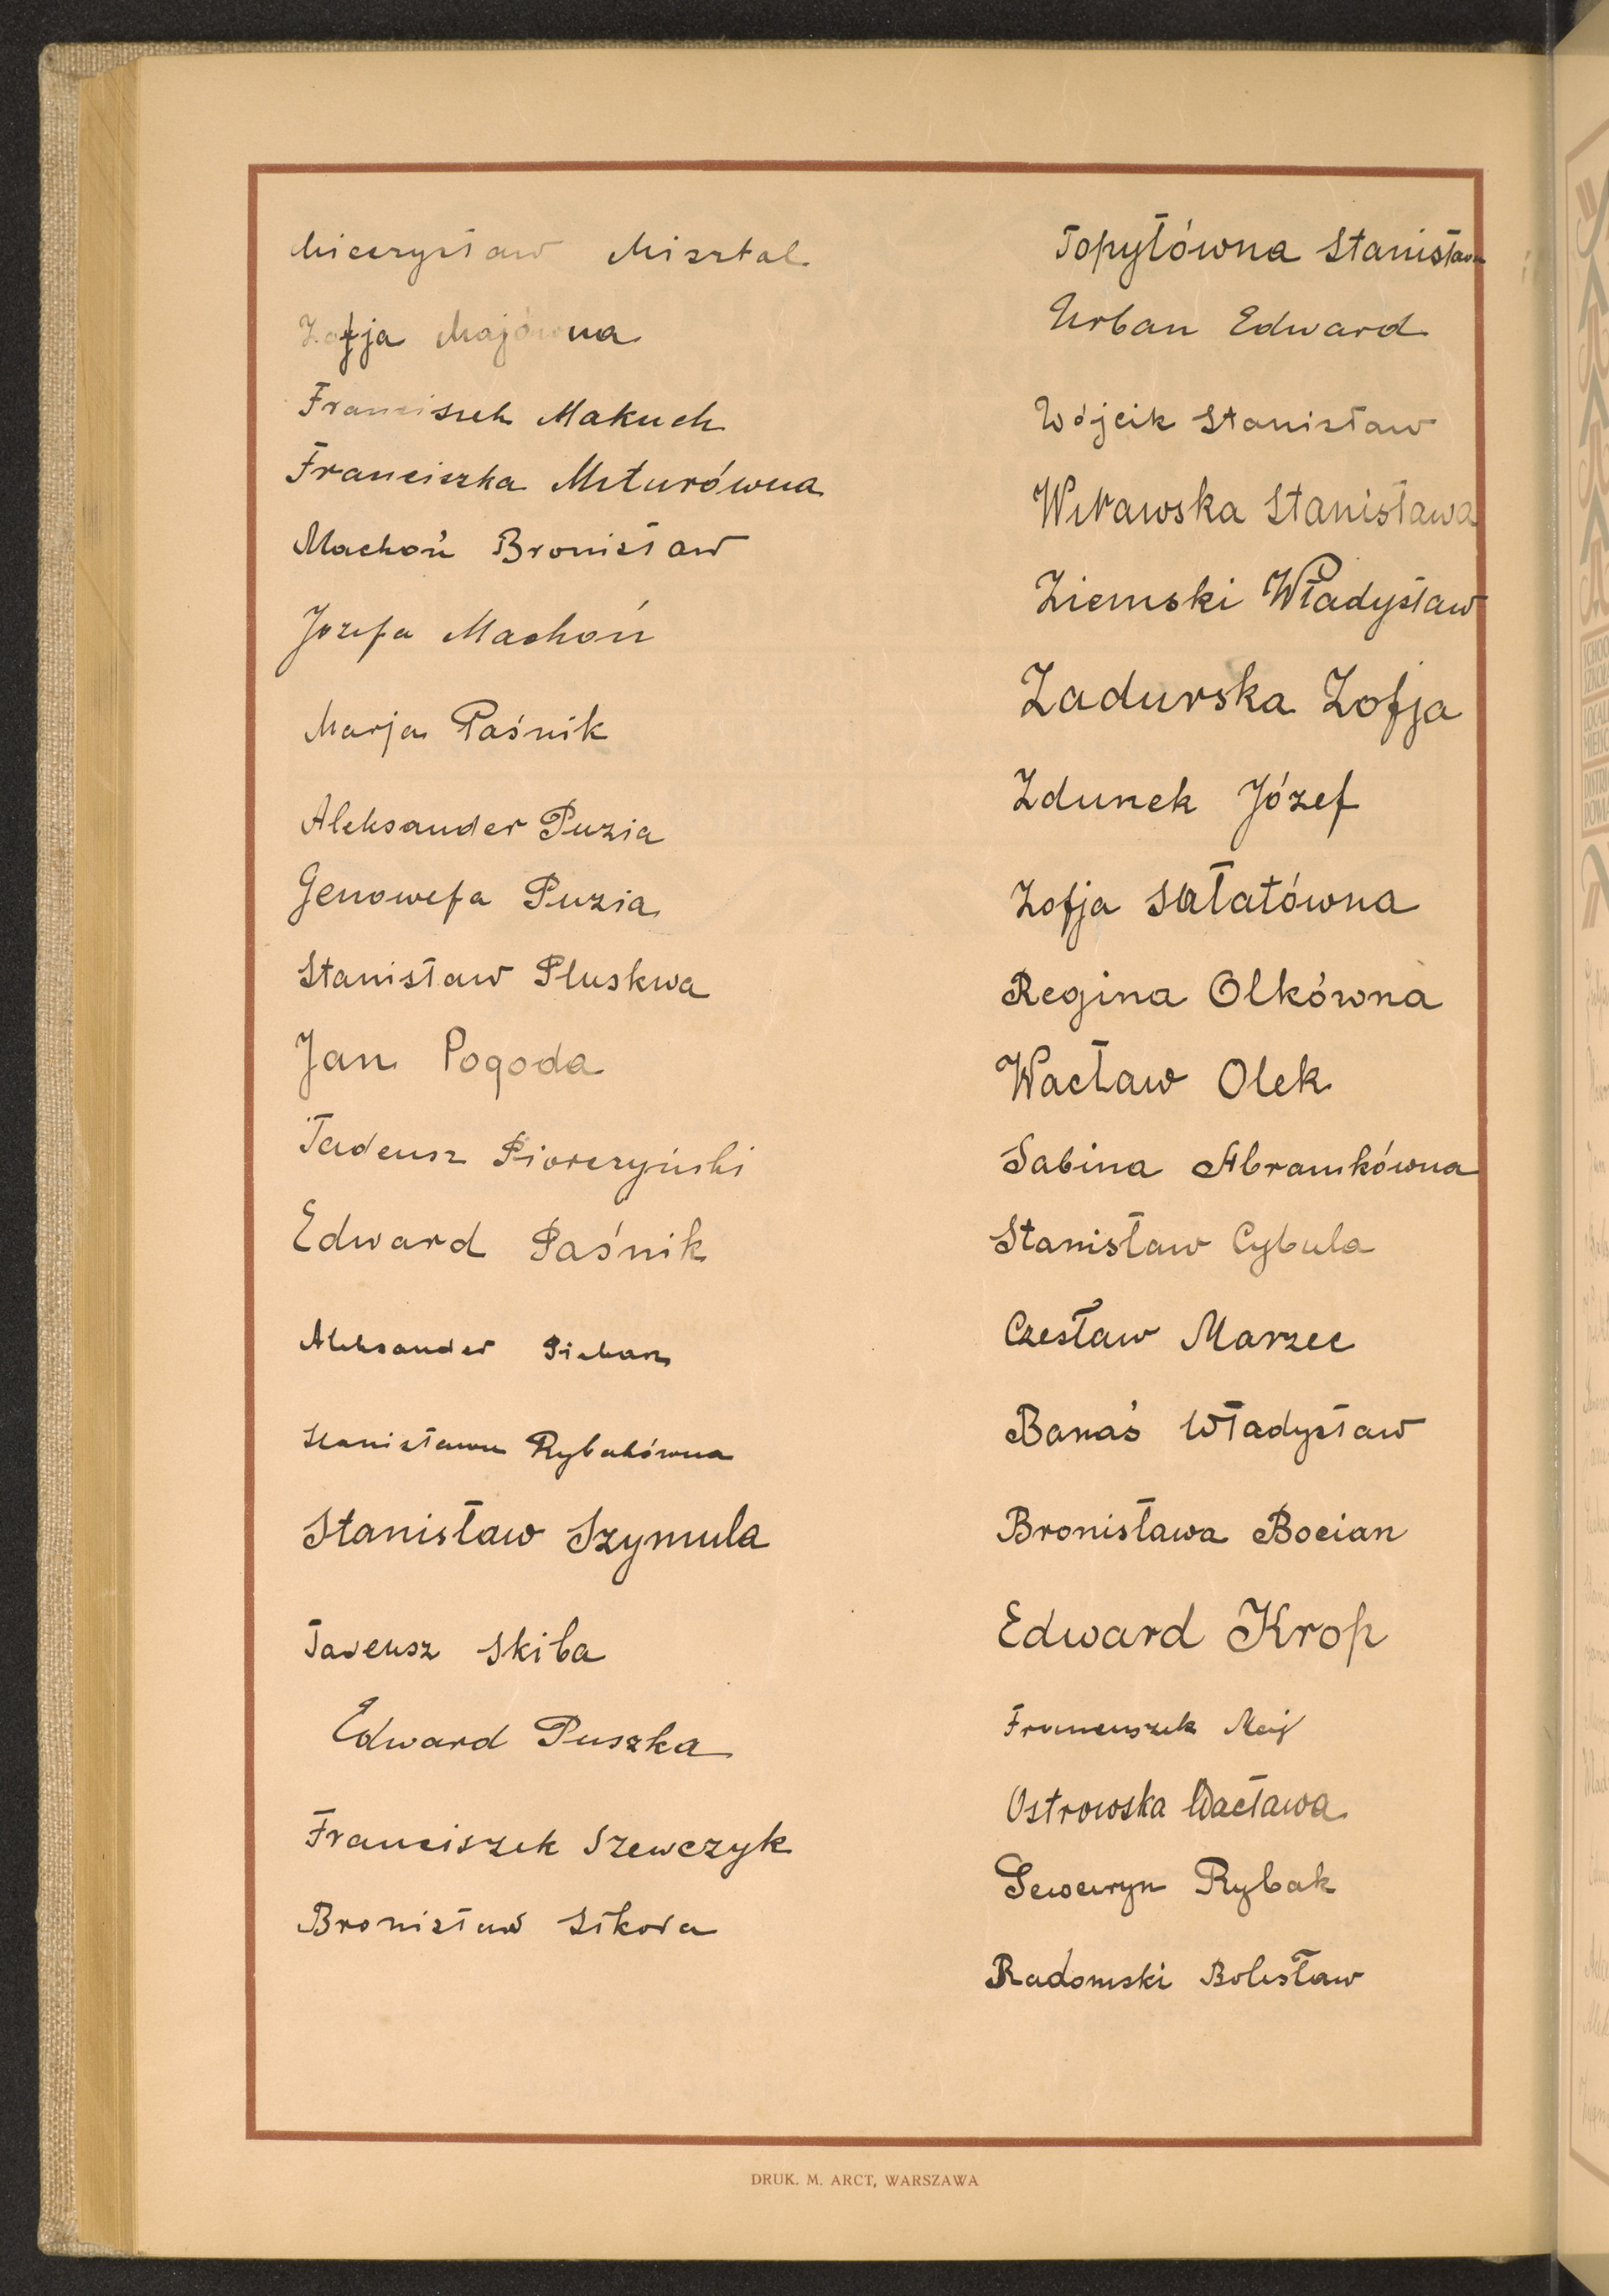 Mieczysław Misztal
Zofja Majówna
Franciszek Makuch
Franciszka Muturówna
Machoń Bronisław
Józefa Machoń
Marja Paśnik
Aleksander Puzia
Genowefa Puzia
Stanisław Pluskwa
Jan Pogoda
Tadeusz Piorczyński
Edward Paśnik
Aleksander
Stanisława Rybakówna
Stanisław Szymula
Tadeusz Skiba
Edward Puszka
Franciszek Szewczyk
Bronisław Sikora
Topyłówna Stanisława
Urban Edward
Wójcik Stanisław
Stanisława
Ziemski Władysław
Zadurska Zofja
Zdunek Józef
Zofja Sałatówna
Regina Olkówna
Wacław Olek
Sabina Abramkówna
Stanisław Cybula
Czesław Marzec
Banaś Władysław
Bronisława Bocian
Edward Krop
Franciszek Maj
Ostrowska Wacława
Seweryn Rybak
Radomski Bolesław
DRUK. M. ARCT, WARSZAWA